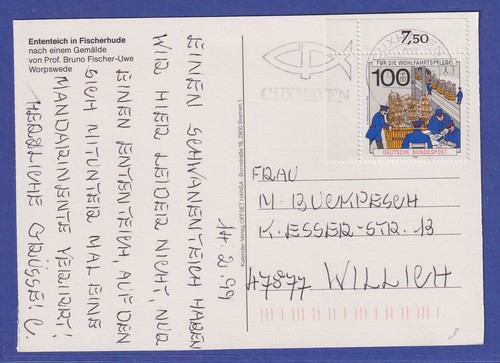 Ententeich in Fischerhude
nach einem Gemälde
von Prof. Bruno Fischer-Uwe
Worpswede
EINEN SCHWANENTEICH HABEN
WIR HIER LEIDER NICHT, NUR
EINEN ENTENTEICH, AUF DEN
SICH MITUNTER MAL EINE
MANDARINENTE VERIRRT!
HERZLICHE GRÜSSE! C.
14.2.99
Kalender-Verlag OFFSET HANSA · Bornstraße 18, 2800 Bremen 1
CUXHAVEN
7,50
FÜR DIE WOHLFAHRTSPFLEGE
100
DEUTSCHE BUNDESPOST
FRAU
M. BUCKPESCH
K.-ESSER-STR. 13
47877 WILLICH